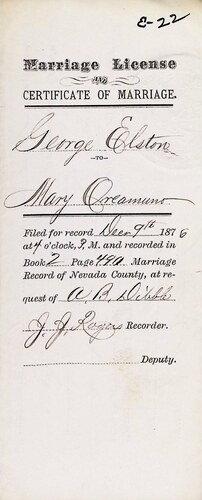 E-22
Marriage License
AND
CERTIFICATE OF MARRIAGE.
George Elston
—TO—
Mary Oreamuno
Filed for record Dec 9th 1876
at 4 o'clock, P. M. and recorded in
Book 2 Page 490. Marriage
Record of Nevada County, at re-
quest of A. B. Dibble
J. J. Rogers Recorder.
Deputy.